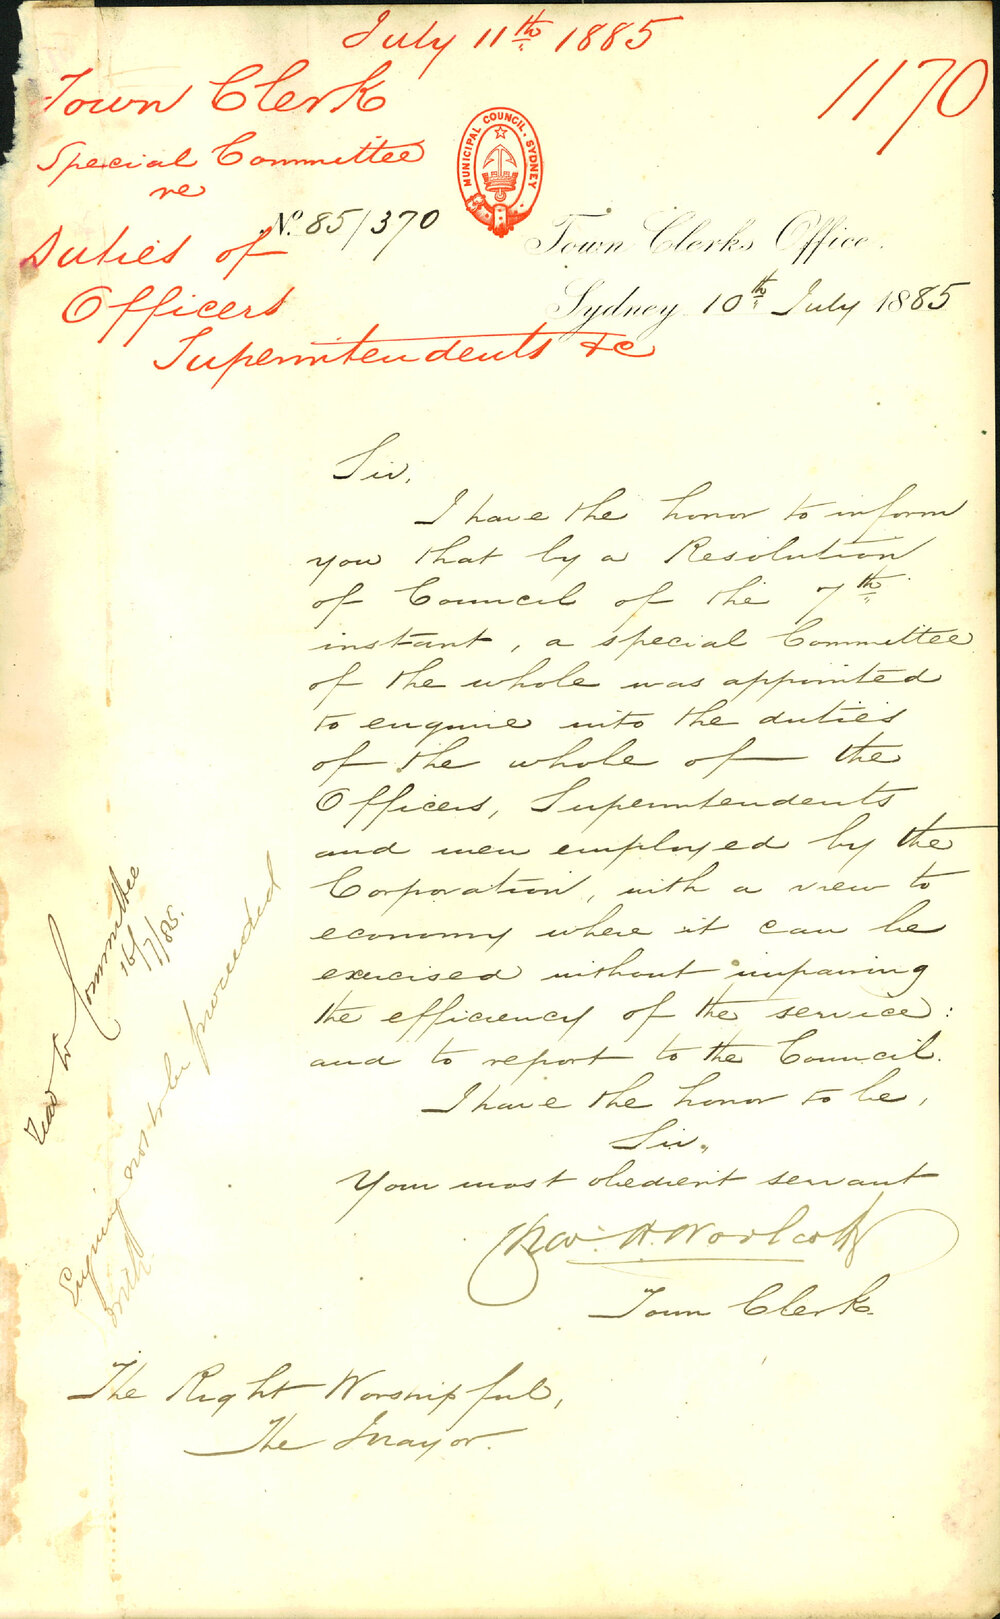 July 11th 1885
1170
Town Clerk
Special Committee
re
Duties of
Officers
Superintendents &c
MUNICIPAL COUNCIL. SYDNEY
No. 85/370
Town Clerks Office.
Sydney 10th July 1885
Sir,
I have the honor to inform
you that by a Resolution
of Council of the 7th
instant, a special Committee
of the whole was appointed
to enquire into the duties
of the whole of the
Officers, Superintendents
and men employed by the
Corporation, with a view to
economy where it can be
exercised without impairing
the efficiency of the service:
and to report to the Council.
I have the honor to be,
Sir,
Your most obedient servant
Chas. H. Woolcott
Town Clerk.
The Right Worshipful,
The Mayor.
Read to Committee
16/7/85.
Enquiry not to be proceeded
with